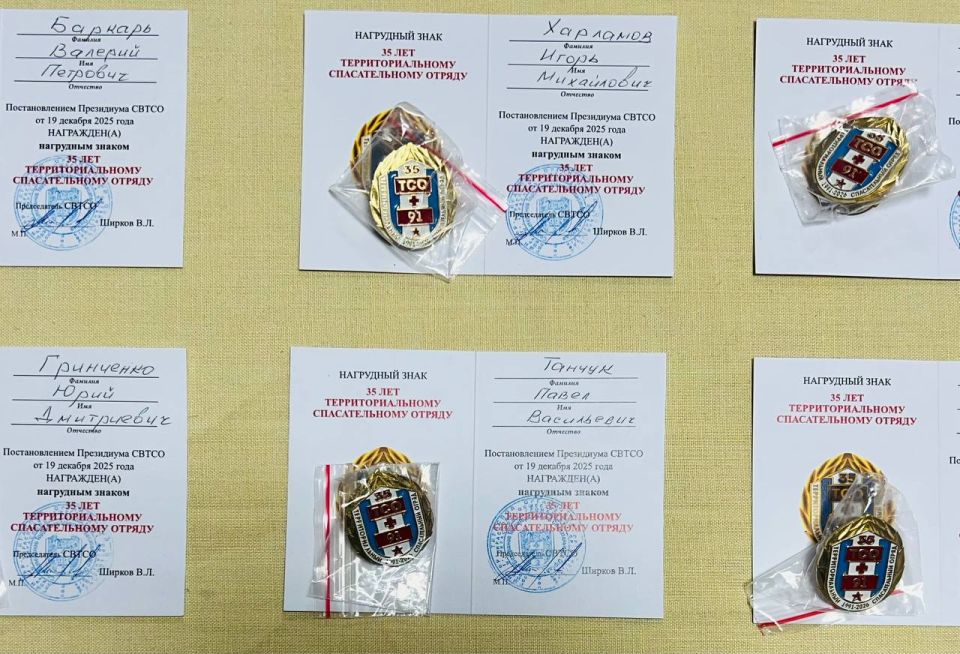 Баркарь
Фамилия
Валерий
Имя
Петрович
Отчество
Постановлением Президиума СВТСО
от 19 декабря 2025 года
НАГРАЖДЕН(А)
нагрудным знаком
35 ЛЕТ
ТЕРРИТОРИАЛЬНОМУ
СПАСАТЕЛЬНОМУ ОТРЯДУ
Председатель СВТСО
Ширков В.Л.
М.П.
НАГРУДНЫЙ ЗНАК
35 ЛЕТ
ТЕРРИТОРИАЛЬНОМУ
СПАСАТЕЛЬНОМУ ОТРЯДУ
35
ТСО
91
1991-2026
Харламов
Фамилия
Игорь
Имя
Михайлович
Отчество
Постановлением Президиума СВТСО
от 19 декабря 2025 года
НАГРАЖДЕН(А)
нагрудным знаком
35 ЛЕТ
ТЕРРИТОРИАЛЬНОМУ
СПАСАТЕЛЬНОМУ ОТРЯДУ
Председатель СВТСО
Ширков В.Л.
М.П.
НАГРУДНЫЙ ЗНАК
35 ЛЕТ
ТЕРРИТОРИАЛЬНОМУ
СПАСАТЕЛЬНОМУ ОТРЯДУ
35
ТСО
91
1991-2026 СПАСАТЕЛЬНЫЙ
Гринченко
Фамилия
Юрий
Имя
Дмитриевич
Отчество
Постановлением Президиума СВТСО
от 19 декабря 2025 года
НАГРАЖДЕН(А)
нагрудным знаком
35 ЛЕТ
ТЕРРИТОРИАЛЬНОМУ
СПАСАТЕЛЬНОМУ ОТРЯДУ
Председатель СВТСО
Ширков В.Л.
М.П.
НАГРУДНЫЙ ЗНАК
35 ЛЕТ
ТЕРРИТОРИАЛЬНОМУ
СПАСАТЕЛЬНОМУ ОТРЯДУ
35
ТСО
91
Танчук
Фамилия
Павел
Имя
Васильевич
Отчество
Постановлением Президиума СВТСО
от 19 декабря 2025 года
НАГРАЖДЕН(А)
нагрудным знаком
35 ЛЕТ
ТЕРРИТОРИАЛЬНОМУ
СПАСАТЕЛЬНОМУ ОТРЯДУ
Председатель СВТСО
Ширков В.Л.
М.П.
НАГРУДНЫЙ ЗНАК
35 ЛЕТ
ТЕРРИТОРИАЛЬНОМУ
СПАСАТЕЛЬНОМУ ОТРЯДУ
35
ТСО
35
ТСО
91
ТЕРРИТОРИАЛЬНЫЙ 1991-2026 СПАСАТЕЛЬНЫЙ ОТРЯД